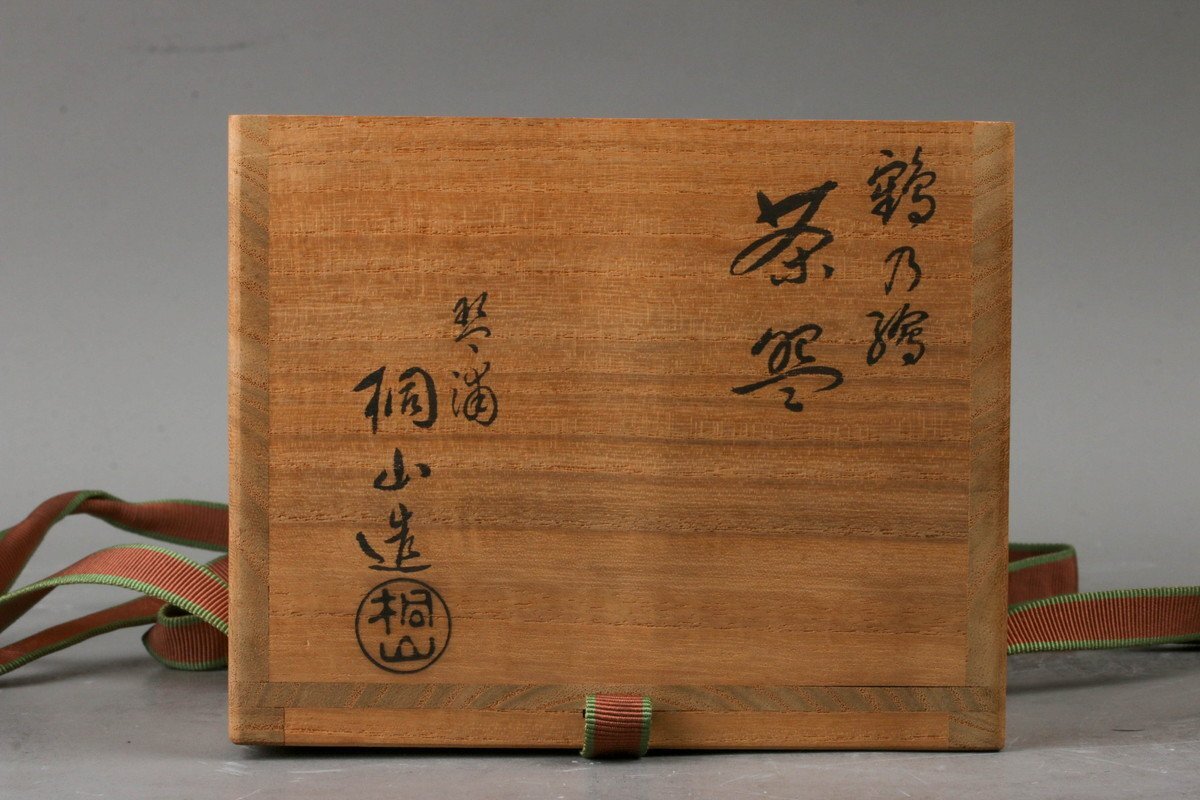 鶴乃繪
茶盌
琴浦
桐山造
桐山